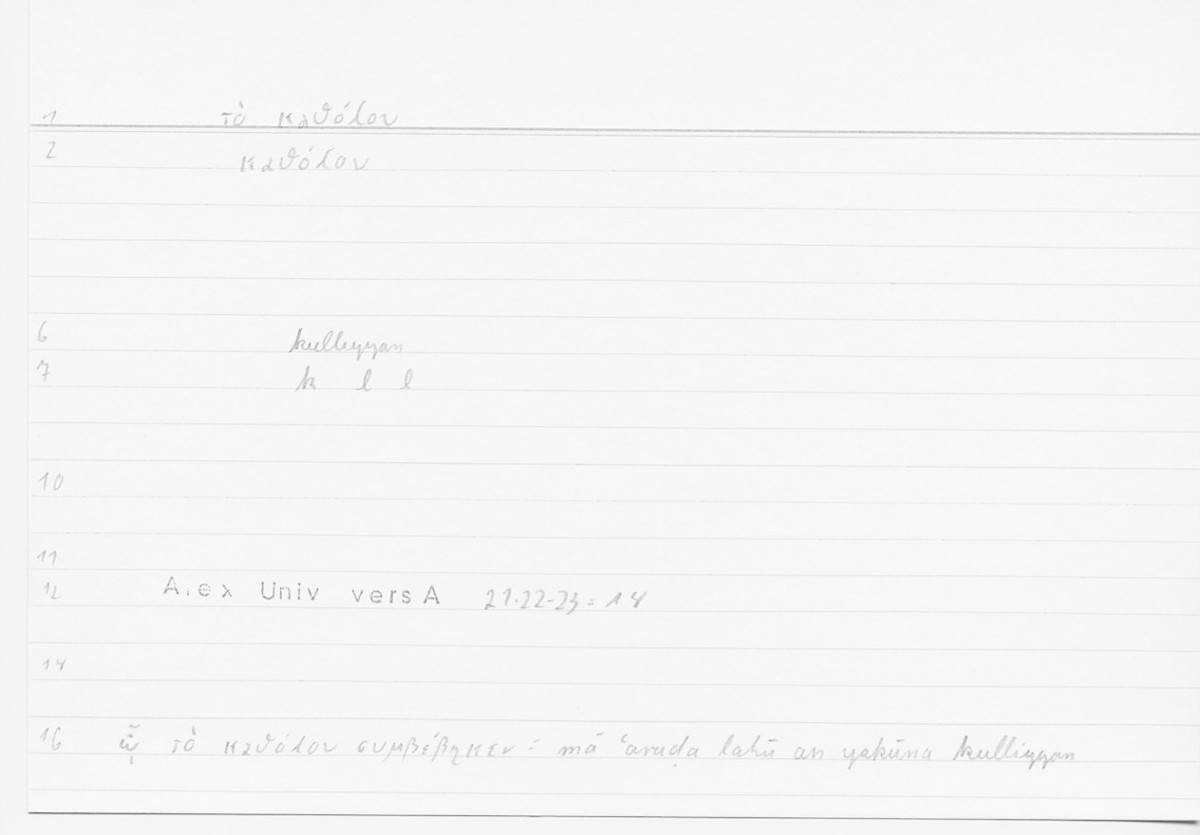 1 τὸ καθόλου
2 καθόλου
6 kulliyyan
7 k l l
10
11
12 Alex Univ vers A 21.22-23 = 14
14
16 ᾧ τὸ καθόλου συμβέβηκεν = mā ʿaraḍa lahū an yakūna kulliyyan